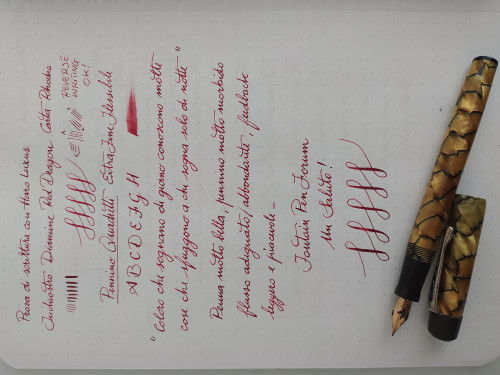 Prova di scrittura con Hero Lucens
Inchiostro Diamine Red Dragon Carta Rhodia
A REVERSE
WRITING
OK!
Pennino Canaditti Extra Fine Flessibile
A B C D E F G H
"Coloro che sognano di giorno conoscono molte
cose che sfuggono a chi sogna solo di notte"
Penna molto bella, pennino molto morbido
flusso adeguato, abbondante, feedback
leggero e piacevole -
Fountain Pen Forum
Un saluto!